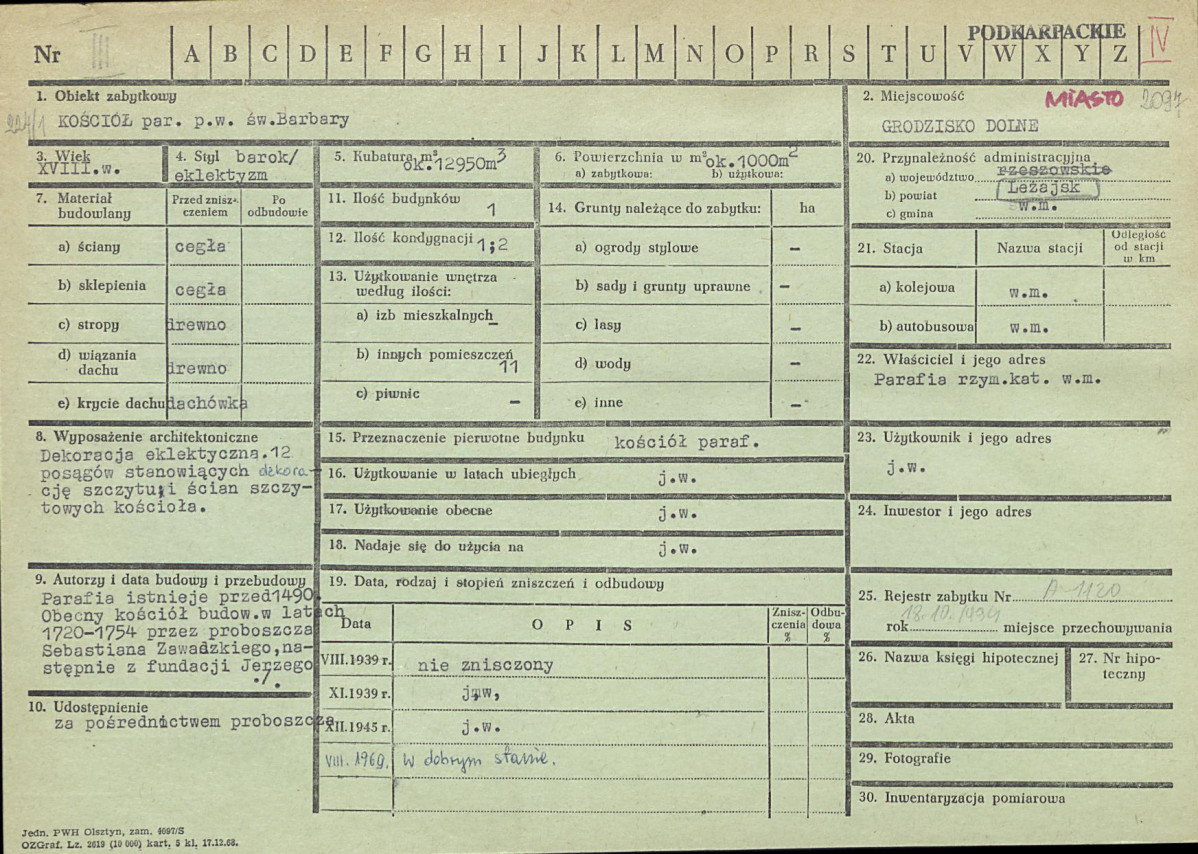 PODKARPACKIE
Nr III A B C D E F G H I J K L M N O P R S T U V W X Y Z IV
1. Obiekt zabytkowy
224/1 KOŚCIÓŁ par. p.w. św.Barbary
2. Miejscowość MIASTO 2097
GRODZISKO DOLNE
3. Wiek
XVIII.w.
4. Styl barok/
eklektyzm
5. Kubatura m³
ok.12950m3
6. Powierzchnia w m² ok.1000m2
a) zabytkowa: b) użytkowa:
20. Przynależność administracyjna
a) województwo rzeszowskie
b) powiat Leżajsk
c) gmina w.m.
7. Materiał
budowlany
Przed znisz-
czeniem
Po
odbudowie
a) ściany cegła
b) sklepienia cegła
c) stropy drewno
d) wiązania
dachu drewno
e) krycie dachu dachówka
11. Ilość budynków 1
12. Ilość kondygnacji 1;2
13. Użytkowanie wnętrza
według ilości:
a) izb mieszkalnych –
b) innych pomieszczeń
11
c) piwnic –
14. Grunty należące do zabytku: ha
a) ogrody stylowe –
b) sady i grunty uprawne –
c) lasy –
d) wody –
e) inne –
21. Stacja Nazwa stacji
Odległość
od stacji
w km
a) kolejowa w.m.
b) autobusowa w.m.
22. Właściciel i jego adres
Parafia rzym.kat. w.m.
8. Wyposażenie architektoniczne
Dekoracja eklektyczna.12
posągów stanowiących dekora-
cję szczytu i ścian szczy-
towych kościoła.
15. Przeznaczenie pierwotne budynku kościół paraf.
16. Użytkowanie w latach ubiegłych j.w.
17. Użytkowanie obecne j.w.
18. Nadaje się do użycia na j.w.
23. Użytkownik i jego adres "
j.w.
24. Inwestor i jego adres
9. Autorzy i data budowy i przebudowy
Parafia istnieje przed1490.
Obecny kościół budow.w latach
1720-1754 przez proboszcza
Sebastiana Zawadzkiego,na-
stępnie z fundacji Jerzego
./.
10. Udostępnienie
za pośrednictwem proboszcza
19. Data, rodzaj i stopień zniszczeń i odbudowy
Data O P I S
Znisz-
czenia
%
Odbu-
dowa
%
VIII.1939 r. nie znisczony
XI.1939 r. j.w,
XII.1945 r. j.w.
VIII. 1969. w dobrym stanie.
25. Rejestr zabytku Nr A-1120
rok 18.10.1984 miejsce przechowywania
26. Nazwa księgi hipotecznej
27. Nr hipo-
teczny
28. Akta
29. Fotografie
30. Inwentaryzacja pomiarowa
Jedn. PWH Olsztyn, zam. 4097/S
OZGraf. Lz. 2619 (10 000) kart. 5 kl. 17.12.68.